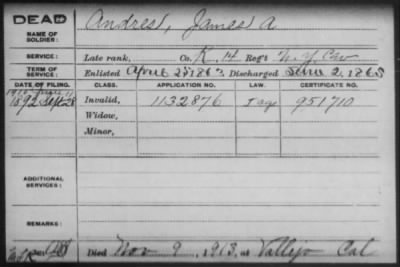 DEAD
Andrest, James A
NAME OF SOLDIER:
SERVICE: Late rank, Co. K, 14 Reg't N.Y. Cav
TERM OF SERVICE: Enlisted April 25 1863, Discharged June 2, 1865
DATE OF FILING. CLASS. APPLICATION NO. LAW. CERTIFICATE NO.
1892 Sept 28 Invalid, 1132876 951710
Widow,
Minor,
ADDITIONAL SERVICES:
REMARKS:
Died Nov 9, 1913, at Vallejo Cal